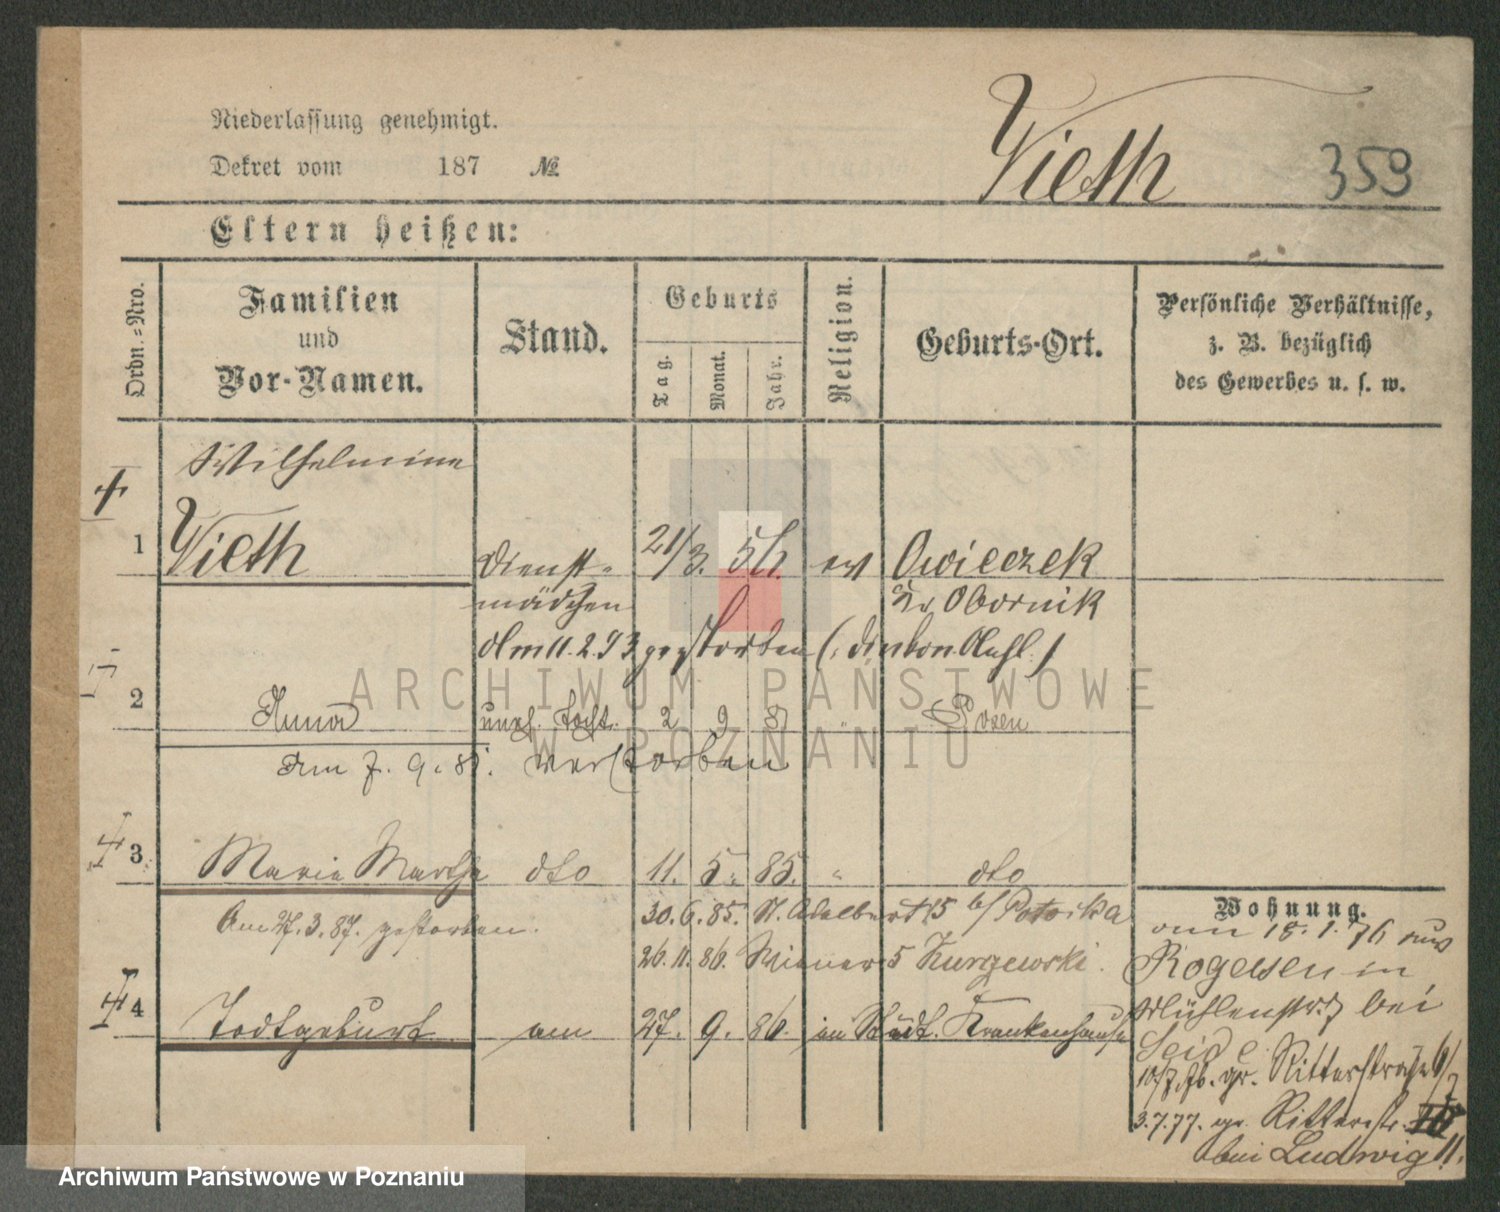 Niederlassung genehmigt.
Dekret vom 187 №
Vieth 359
Eltern heißen:
Ordn.-Nro.
Familien
und
Vor-Namen.
Stand.
Geburts
Tag.
Monat.
Jahr.
Religion.
Geburts-Ort.
Persönliche Verhältnisse,
z. B. bezüglich
des Gewerbes u. s. w.
Wilhelmine
1 Vieth Dienst- 21/3. 54. ev Owieczek
mädchen Kr Obornik
Am 11.2.93 gestorben
2 Anna unehl. Tocht. 2 9 Posen
Am 7. 9. 81. verstorben
3 Marie Martha dto 11. 5. 85. " dto
Am 27.3.87. gestorben.
30. 6. 85. St. Adalbert 15 b/
26. 11. 86. Wiener 5 Kurzewski.
4 Todtgeburt am 27. 9. 86. im Städt. Krankenhause
Wohnung.
vom 18. 1. 76 aus
Rogasen in
Mühlenstr. 7 bei
Seide
gr. Ritterstraße
3.7.77. gr. Ritterstr.
bei Ludwig 11.
ARCHIWUM PAŃSTWOWE
W POZNANIU
Archiwum Państwowe w Poznaniu